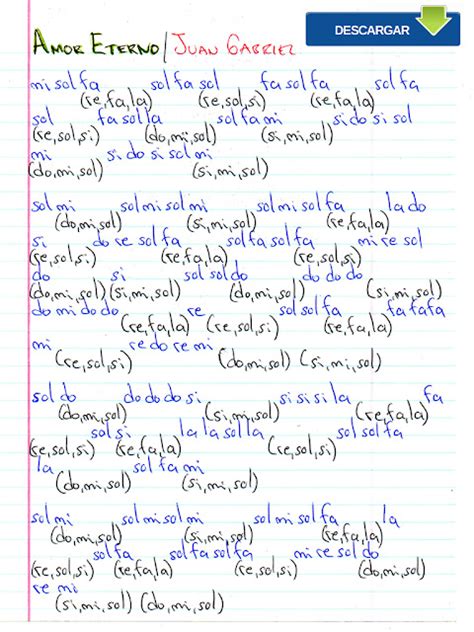 AMOR ETERNO / JUAN GABRIEL
DESCARGAR
mi sol fa sol fa sol fa sol fa sol fa
(re,fa,la) (re,sol,si) (re,fa,la)
sol fa sol la sol fa mi si do si sol
(re,sol,si) (do,mi,sol) (si,mi,sol)
mi si do si sol mi
(do,mi,sol) (si,mi,sol)
sol mi sol mi sol mi sol mi sol fa la do
(do,mi,sol) (si,mi,sol) (re,fa,la)
si do re sol fa sol fa sol fa mi re sol
(re,sol,si) (re,fa,la) (re,sol,si)
do si sol sol do do do do
(do,mi,sol) (si,mi,sol) (do,mi,sol) (si,mi,sol)
do mi do do re sol sol fa fa fa fa
(re,fa,la) (re,sol,si) (re,fa,la)
mi re do re mi
(re,sol,si) (do,mi,sol) (si,mi,sol)
sol do do do do si si si si la fa
(do,mi,sol) (si,mi,sol) (re,fa,la)
sol si la la sol la sol sol fa
(re,sol,si) (re,fa,la) (re,sol,si)
la sol fa mi
(do,mi,sol) (si,mi,sol)
sol mi sol mi sol mi sol mi sol fa la
(do,mi,sol) (si,mi,sol) (re,fa,la)
sol fa sol fa sol fa mi re sol do
(re,sol,si) (re,fa,la) (re,sol,si) (do,mi,sol)
re mi
(si,mi,sol) (do,mi,sol)